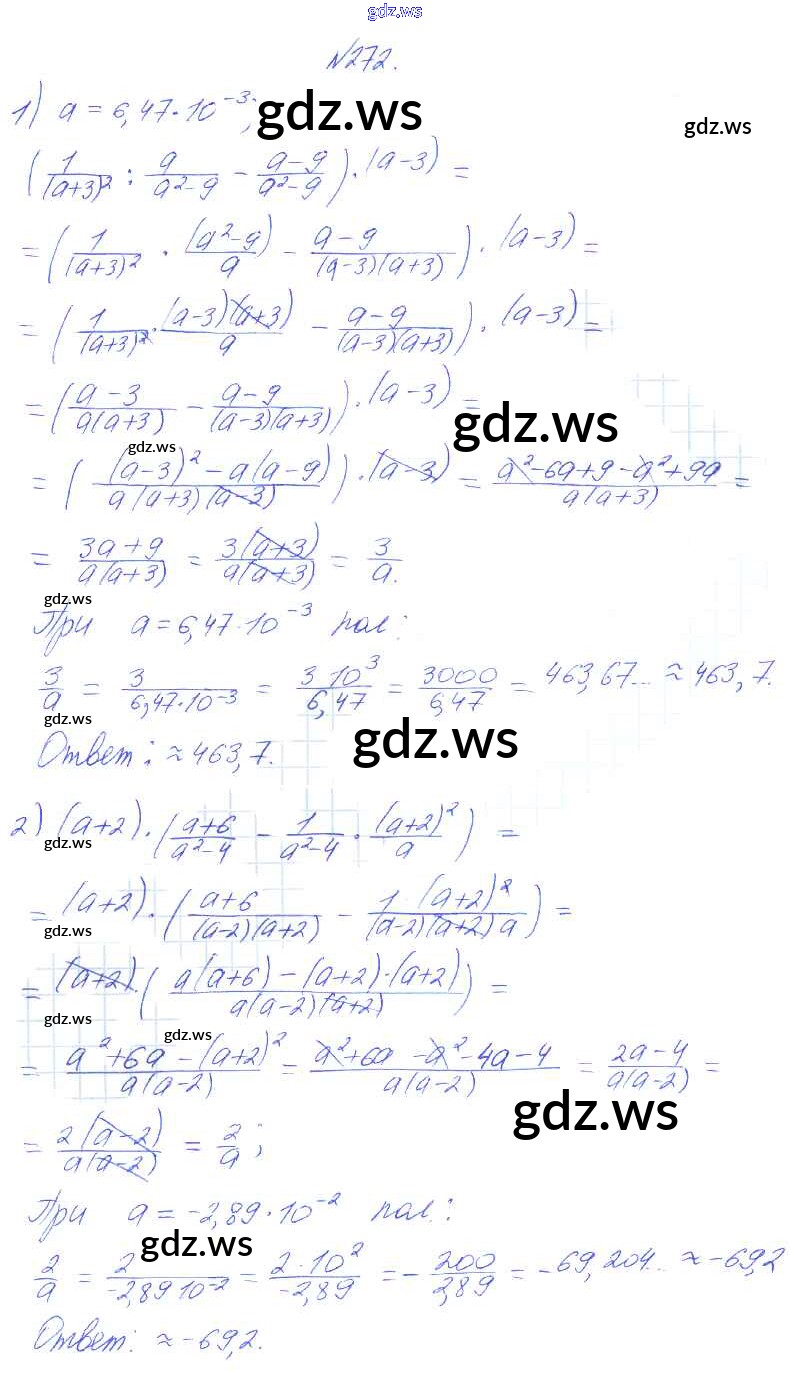 gdz.ws
№272.
1) a = 6,47·10⁻³; gdz.ws gdz.ws
(1/(a+3)² : a/(a²-9) - (a-9)/(a²-9))·(a-3) =
= (1/(a+3)² · (a²-9)/a - (a-9)/((a-3)(a+3)))·(a-3) =
= (1/(a+3)² · (a-3)(a+3)/a - (a-9)/((a-3)(a+3)))·(a-3) =
= ((a-3)/(a(a+3)) - (a-9)/((a-3)(a+3)))·(a-3) =
gdz.ws gdz.ws
= (((a-3)² - a(a-9))/(a(a+3)(a-3)))·(a-3) = (a²-6a+9-a²+9a)/(a(a+3)) =
= (3a+9)/(a(a+3)) = 3(a+3)/(a(a+3)) = 3/a.
gdz.ws
При a = 6,47·10⁻³ пол:
3/a = 3/(6,47·10⁻³) = 3·10³/6,47 = 3000/6,47 = 463,67... ≈ 463,7.
gdz.ws gdz.ws
Ответ: ≈ 463,7.
2) (a+2)·((a+6)/(a²-4) - 1/(a²-4) · (a+2)²/a) =
gdz.ws
= (a+2)·((a+6)/((a-2)(a+2)) - 1·(a+2)²/((a-2)(a+2)a)) =
gdz.ws
= (a+2)·((a(a+6) - (a+2)·(a+2))/(a(a-2)(a+2))) =
gdz.ws gdz.ws
= (a²+6a-(a+2)²)/(a(a-2)) = (a²+6a-a²-4a-4)/(a(a-2)) = (2a-4)/(a(a-2)) =
gdz.ws
= 2(a-2)/(a(a-2)) = 2/a;
При a = -2,89·10⁻² пол.:
gdz.ws
2/a = 2/(-2,89·10⁻²) = 2·10²/(-2,89) = -200/2,89 = -69,204... ≈ -69,2
Ответ: ≈ -69,2.